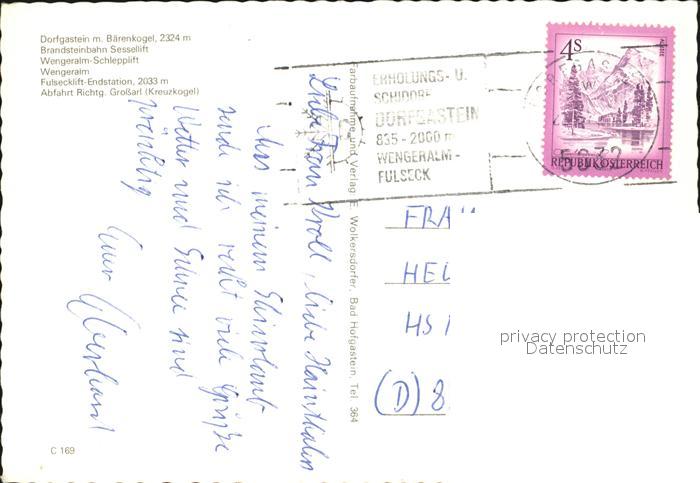 Dorfgastein m. Bärenkogel, 2324 m
Brandsteinbahn Sessellift
Wengeralm-Schlepplift
Wengeralm
Fulsecklift-Endstation, 2033 m
Abfahrt Richtg. Großarl (Kreuzkogel)
Liebe Frau Kroll, liebe
Aus meinem Skiurlaub
sende ich recht viele Grüße
Wetter und Schnee sind
prächtig
Euer
C 169
Farbaufnahme und Verlag E. Wolkersdorfer, Bad Hofgastein, Tel. 364
ERHOLUNGS- U.
SCHIDORF
DORFGASTEIN
835-2000 m
WENGERALM-
FULSECK
4S
ALMSEE
REPUBLIK ÖSTERREICH
5632
FRA
HEI
HSI
(D) 8
privacy protection
Datenschutz